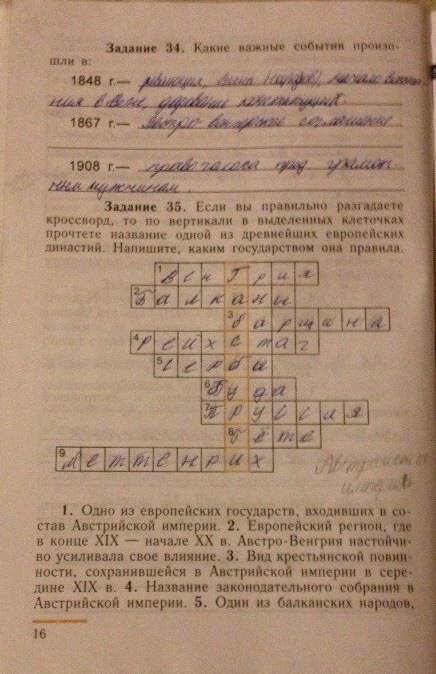 Задание 34. Какие важные события произо-
шли в:
1848 г.— революция, весна народов, начало восста-
ния в Вене, дарование конституции
1867 г.— Австро-венгерское соглашение
1908 г.— право голоса пред грамот-
ным мужчинам.
Задание 35. Если вы правильно разгадаете
кроссворд, то по вертикали в выделенных клеточках
прочтете название одной из древнейших европейских
династий. Напишите, каким государством она правила.
1 Венгрия
2 Балканы
3 барщина
4 Рейхстаг
5 Сербы
6 Буда
7 Пруссия
8 Гёте
9 Меттерних
Австрийская
империя
1. Одно из европейских государств, входивших в со-
став Австрийской империи. 2. Европейский регион, где
в конце XIX — начале XX в. Австро-Венгрия настойчи-
во усиливала свое влияние. 3. Вид крестьянской повин-
ности, сохранившейся в Австрийской империи в сере-
дине XIX в. 4. Название законодательного собрания в
Австрийской империи. 5. Один из балканских народов,
16